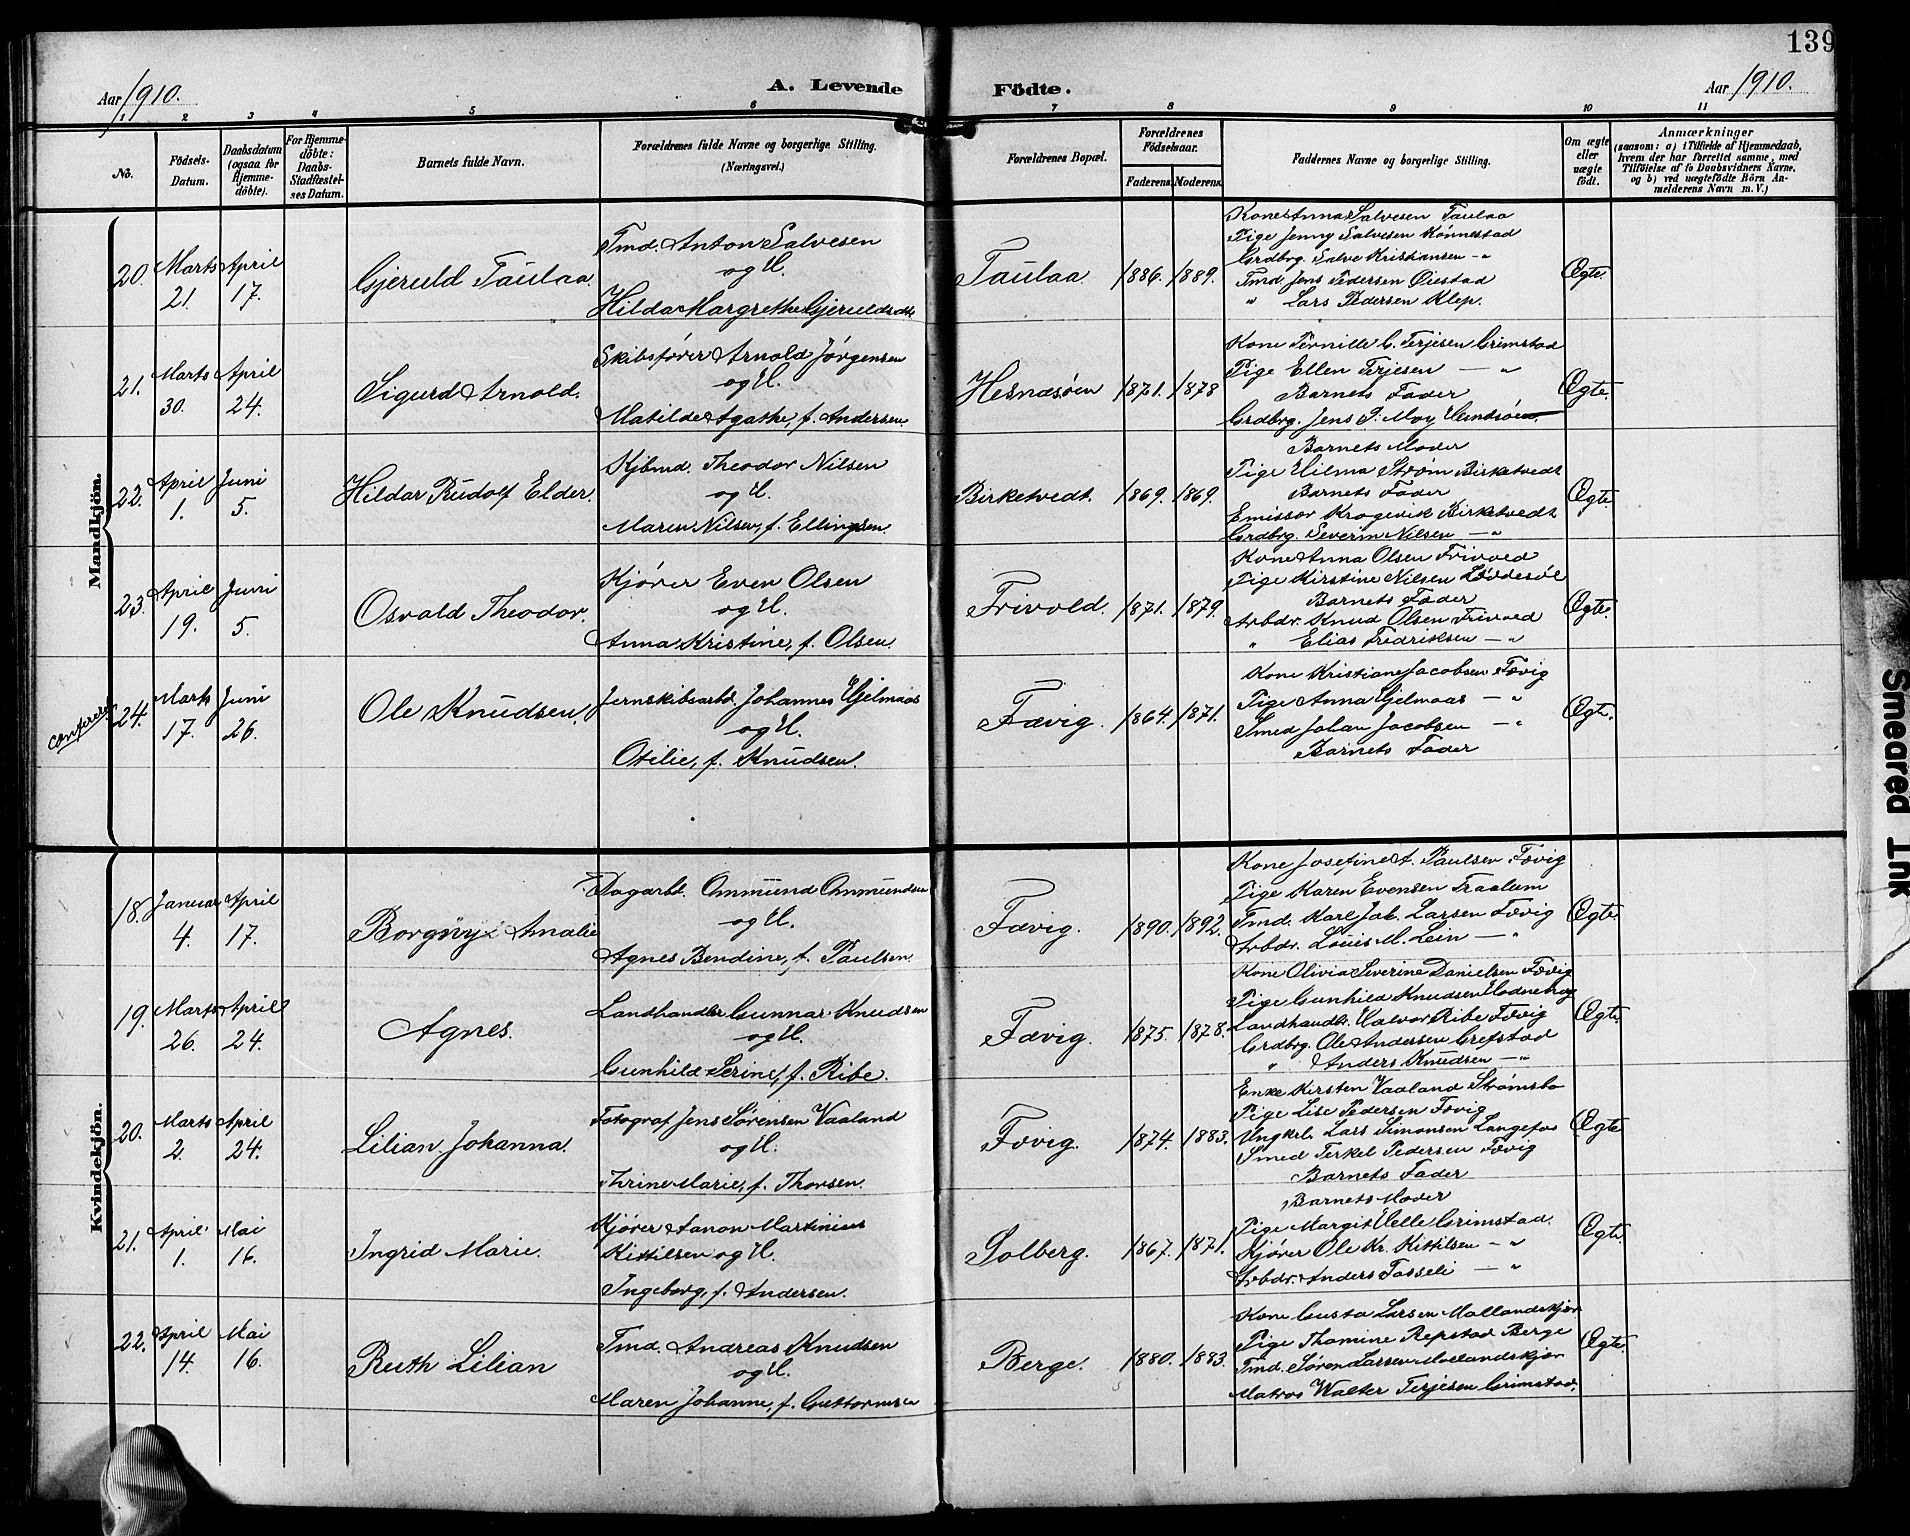 139
Aar 1910.
A. Levende Födte.
Aar 1910.
1 2 3 4 5 6 7 8 9 10 11
No.
Födsels-Datum.
Daabsdatum (ogsaa for Hjemme-döbte).
For Hjemme-döbte: Daabs-Stadfæstel-ses Datum.
Barnets fulde Navn.
Forældrenes fulde Navne og borgerlige Stilling.
(Næringsvei.)
Forældrenes Bopæl.
Forældrenes Födselsaar.
Faderens. Moderens.
Faddernes Navne og borgerlige Stilling.
Om ægte eller uægte födt.
Anmærkninger
(saasom: a) i Tilfælde af Hjemmedaab,
hvem der har forrettet samme, med
Tilföielse af to Daabsvidners Navne,
og b) ved uægtefödte Börn An-
melderens Navn m. V.)
Mandkjön.
20. Marts 21. April 17.
Gjeruld Taulaa.
Tmd. Anton Salvesen
og H.
Hilda Margrethe Gjeruldsdtr
Taulaa. 1886. 1889.
Kone Anna Salvesen Taulaa
Pige Jenny Salvesen Rönnestad
Grdbrg. Salve Kristiansen - "
Tmd. Jens Pedersen Öiestad
" Lars Pedersen Klep.
Ægte.
21. Marts 30. April 24.
Sigurd Arnold.
Skibsförer Arnold Jörgensen
og H.
Matilde Agathe, f. Andersen.
Hesnæsöen 1871. 1878
Kone Pernille C. Terjesen Grimstad
Pige Ellen Terjesen — "
Barnets Fader
Grdbrg. Jens P. Moy Hundsöen.
Ægte.
22. April 1. Juni 5.
Hildar Rudolf Elder.
Kjbmd. Theodor Nilsen
og H.
Maren Nilsen, f. Ellingsen.
Birketvedt. 1869. 1869.
Barnets Moder
Pige Hilma Ström Birketvedt
Barnets Fader
Emissær Krogevik Birketvedt
Grdbrg. Severin Nilsen — "
Ægte.
23. April 19. Juni 5.
Osvald Theodor.
Kjörer Even Olsen
og H.
Anna Kristine, f. Olsen.
Frivold. 1871. 1879.
Kone Anna Olsen Frivold
Pige Kirstine Nilsen Löddesöl
Barnets Fader
Arbdr. Knud Olsen Frivold
" Elias Fredriksen — "
Ægte.
confereres
24. Marts 17. Juni 26.
Ole Knudsen.
Jernskibsarbd. Johannes Hjelmaas
og H.
Otilie, f. Knudsen.
Fævig. 1864. 1871.
Kone Kristiane Jacobsen Fævig
Pige Anna Hjelmaas — "
Smed Johan Jacobsen — "
Barnets Fader
Ægte.
Kvindekjön.
18. Januar 4. April 17.
Borgny Amalie
Dagarbd. Ommund Ommundsen
og H.
Agnes Bendine, f. Paulsen.
Fævig. 1890. 1892.
Kone Josefine A. Paulsen Fævig
Pige Karen Evensen Traalum
Tmd. Karl Jak. Larsen Fævig
Arbdr. Louis M. Lein — "
Ægte.
19. Marts 26. April 24.
Agnes.
Landhandler Gunnar Knudsen
og H.
Gunhild Serine, f. Ribe.
Fævig. 1875. 1878.
Kone Olivia Severine Danielsen Fævig
Pige Gunhild Knudsen Hodnebrog
Landhandlr. Halvor Ribe Fævig
Grdbrg. Ole Andersen Grefstad
" Anders Knudsen — "
Ægte.
20. Marts 2. April 24.
Lilian Johanna.
Fotograf Jens Sörensen Vaaland
og H.
Trine Marie, f. Thorsen.
Fævig. 1874. 1883.
Enke Kirsten Vaaland Strömsbo
Pige Lise Pedersen Fævig
Ungkrl. Lars Simonsen Langefos
Smed Terkel Pedersen Fævig
Barnets Fader
Ægte
21. April 1. Mai 16.
Ingrid Marie.
Kjörer Aanon Martinius
Kittilsen og H.
Ingeborg, f. Andersen.
Solberg. 1867. 1871.
Barnets Moder
Pige Margit Helle Grimstad.
Kjörer Ole Kr. Kittilsen — "
Arbdr. Anders Fosseli — "
Ægte.
22. April 14. Mai 16.
Ruth Lilian
Tmd. Andreas Knudsen
og H.
Maren Johanne, f. Guttormsen
Berge. 1880. 1883.
Kone Gusta Larsen Mollandskjær
Pige Thomine Repstad Berge
Tmd. Sören Larsen Mollandskjær
Matros Walter Terjesen Grimstad.
Ægte.
Smeared Ink